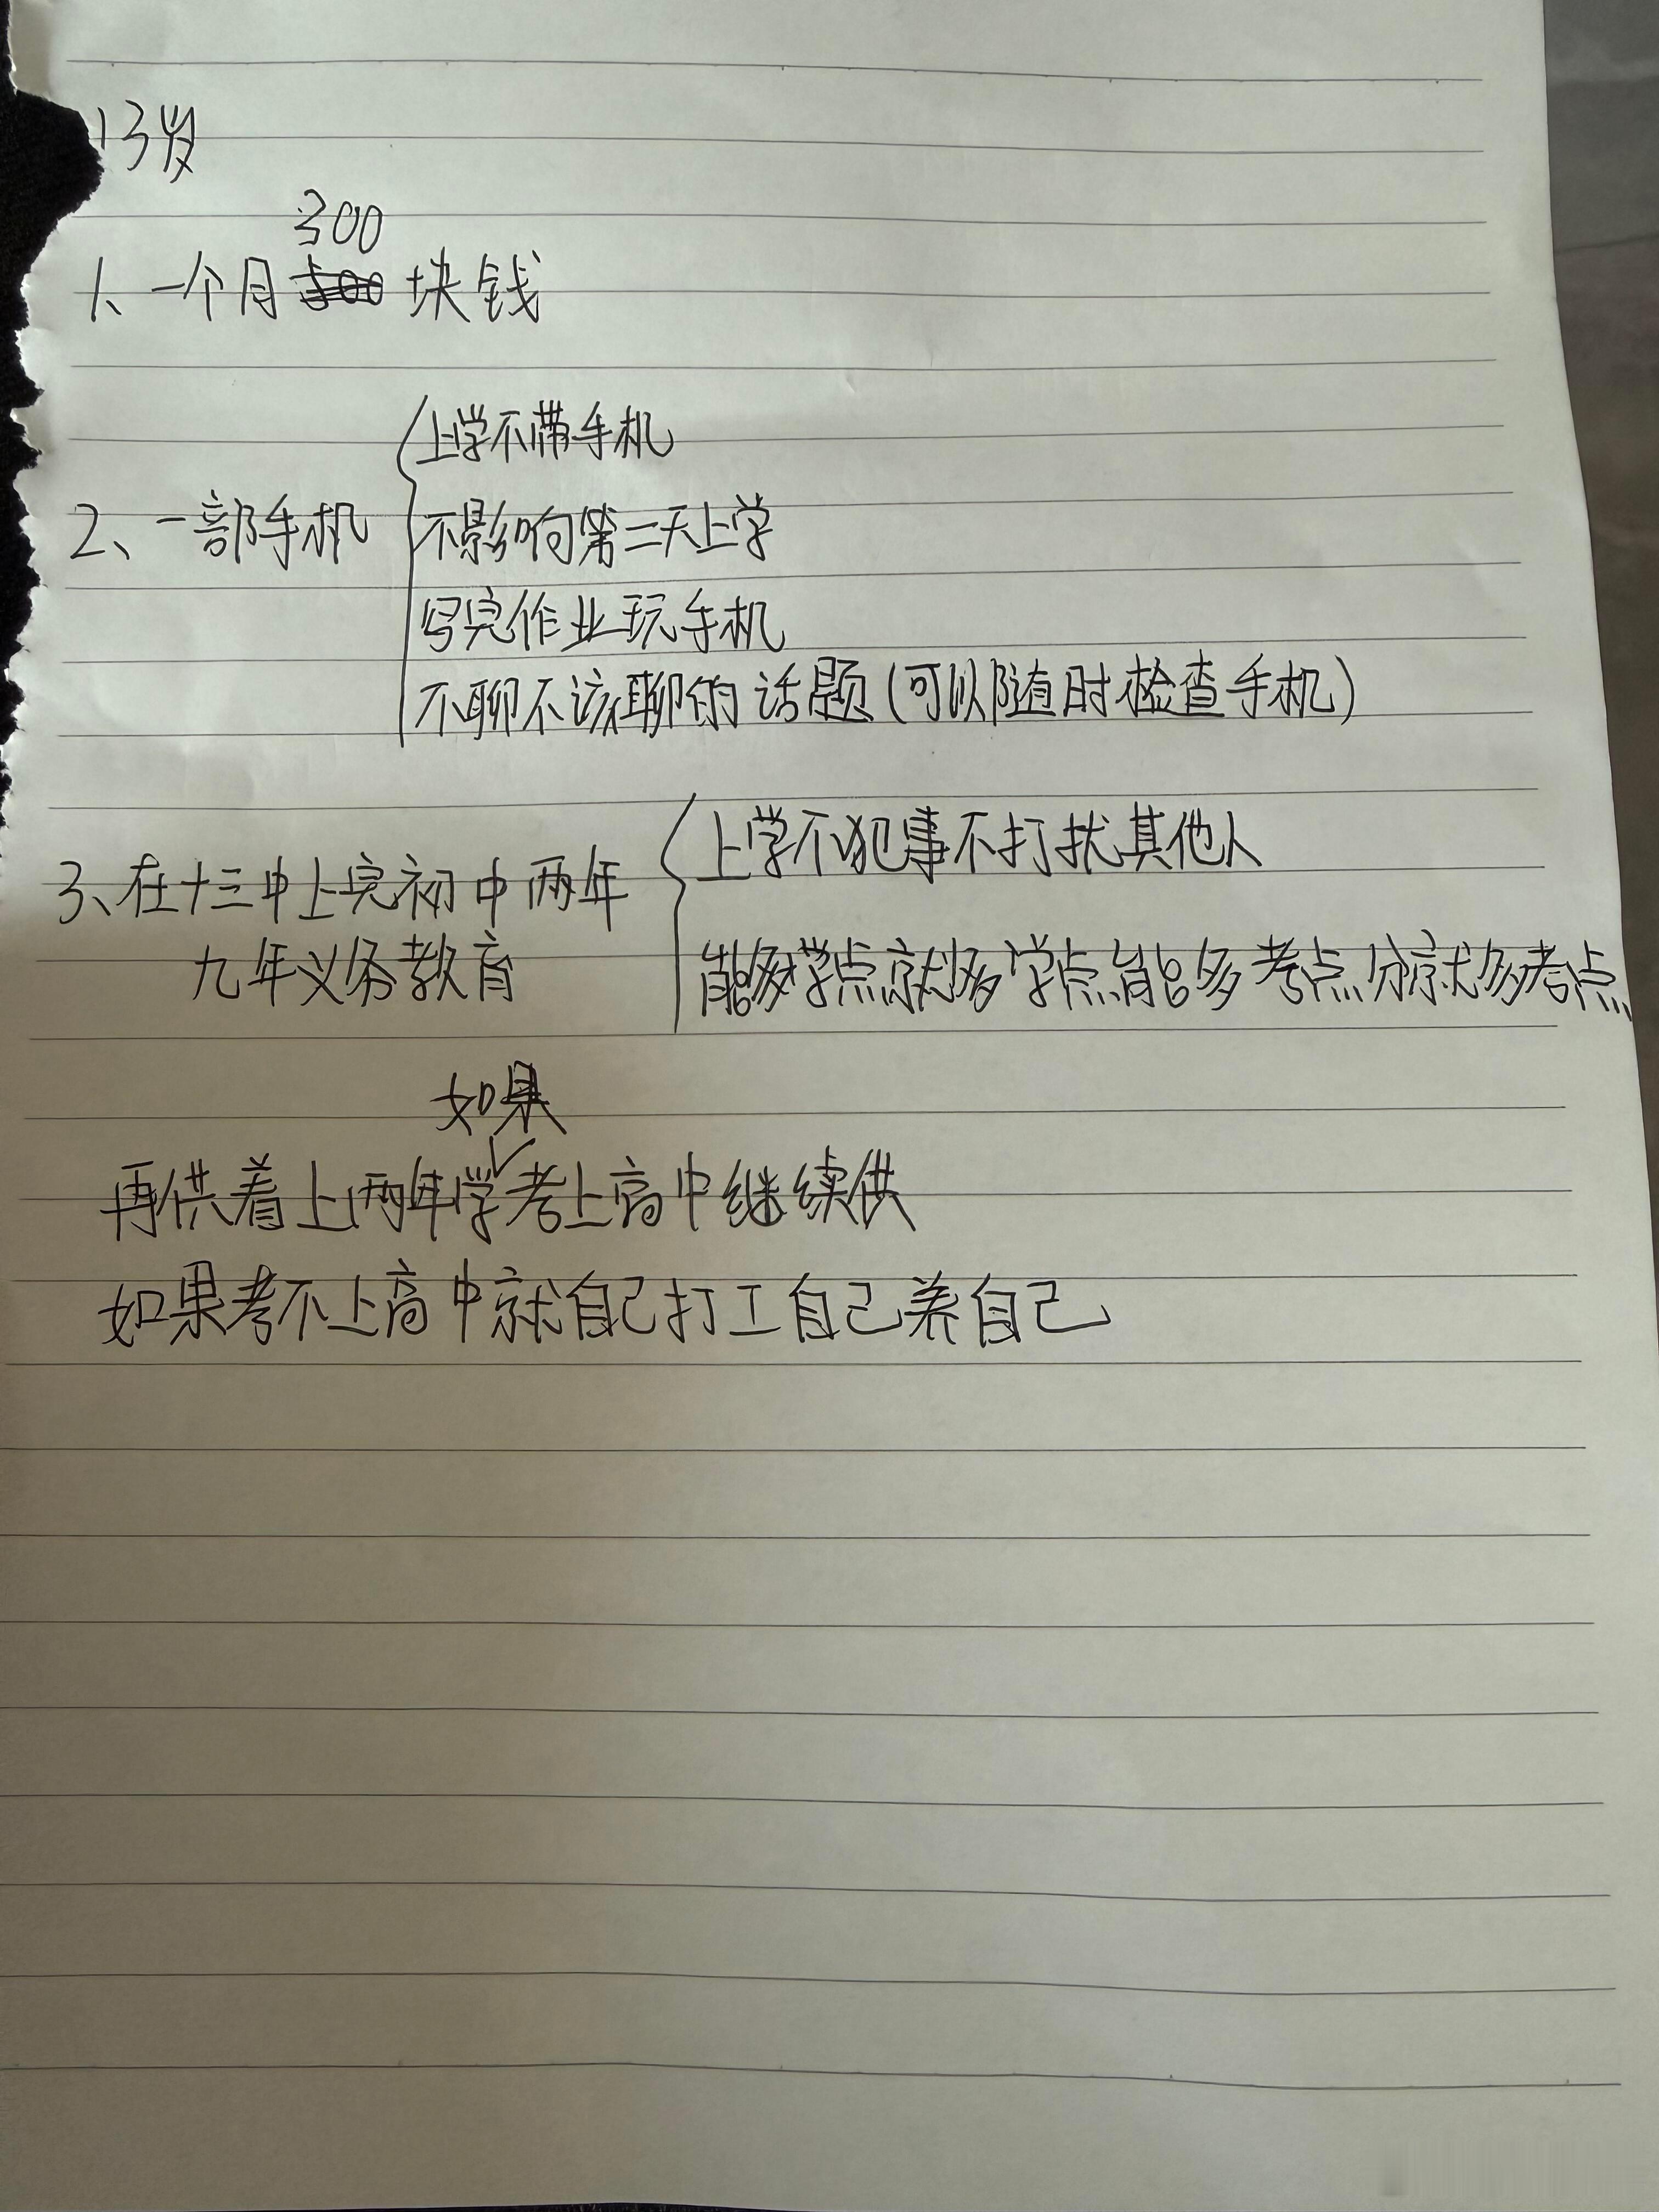 13岁
300
1、一个月500块钱
上学不带手机
2、一部手机
不影响第二天上学
写完作业玩手机
不聊不该聊的话题(可以随时检查手机)
上学不犯事不打扰其他人
3、在十三中上完初中两年
九年义务教育
能多学点就多学点能多考点分就多考点
如果
再供着上两年学考上高中继续供
如果考不上高中就自己打工自己养自己